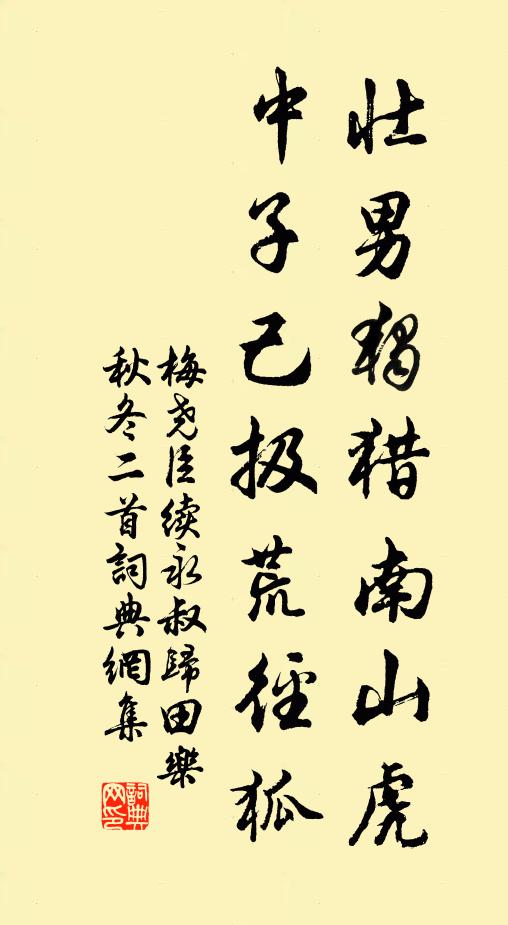 壮男独猎南山虎
中子已扱荒径狐
梅尧臣续永叔歸田樂
秋冬二首詞典網集
詞典网印